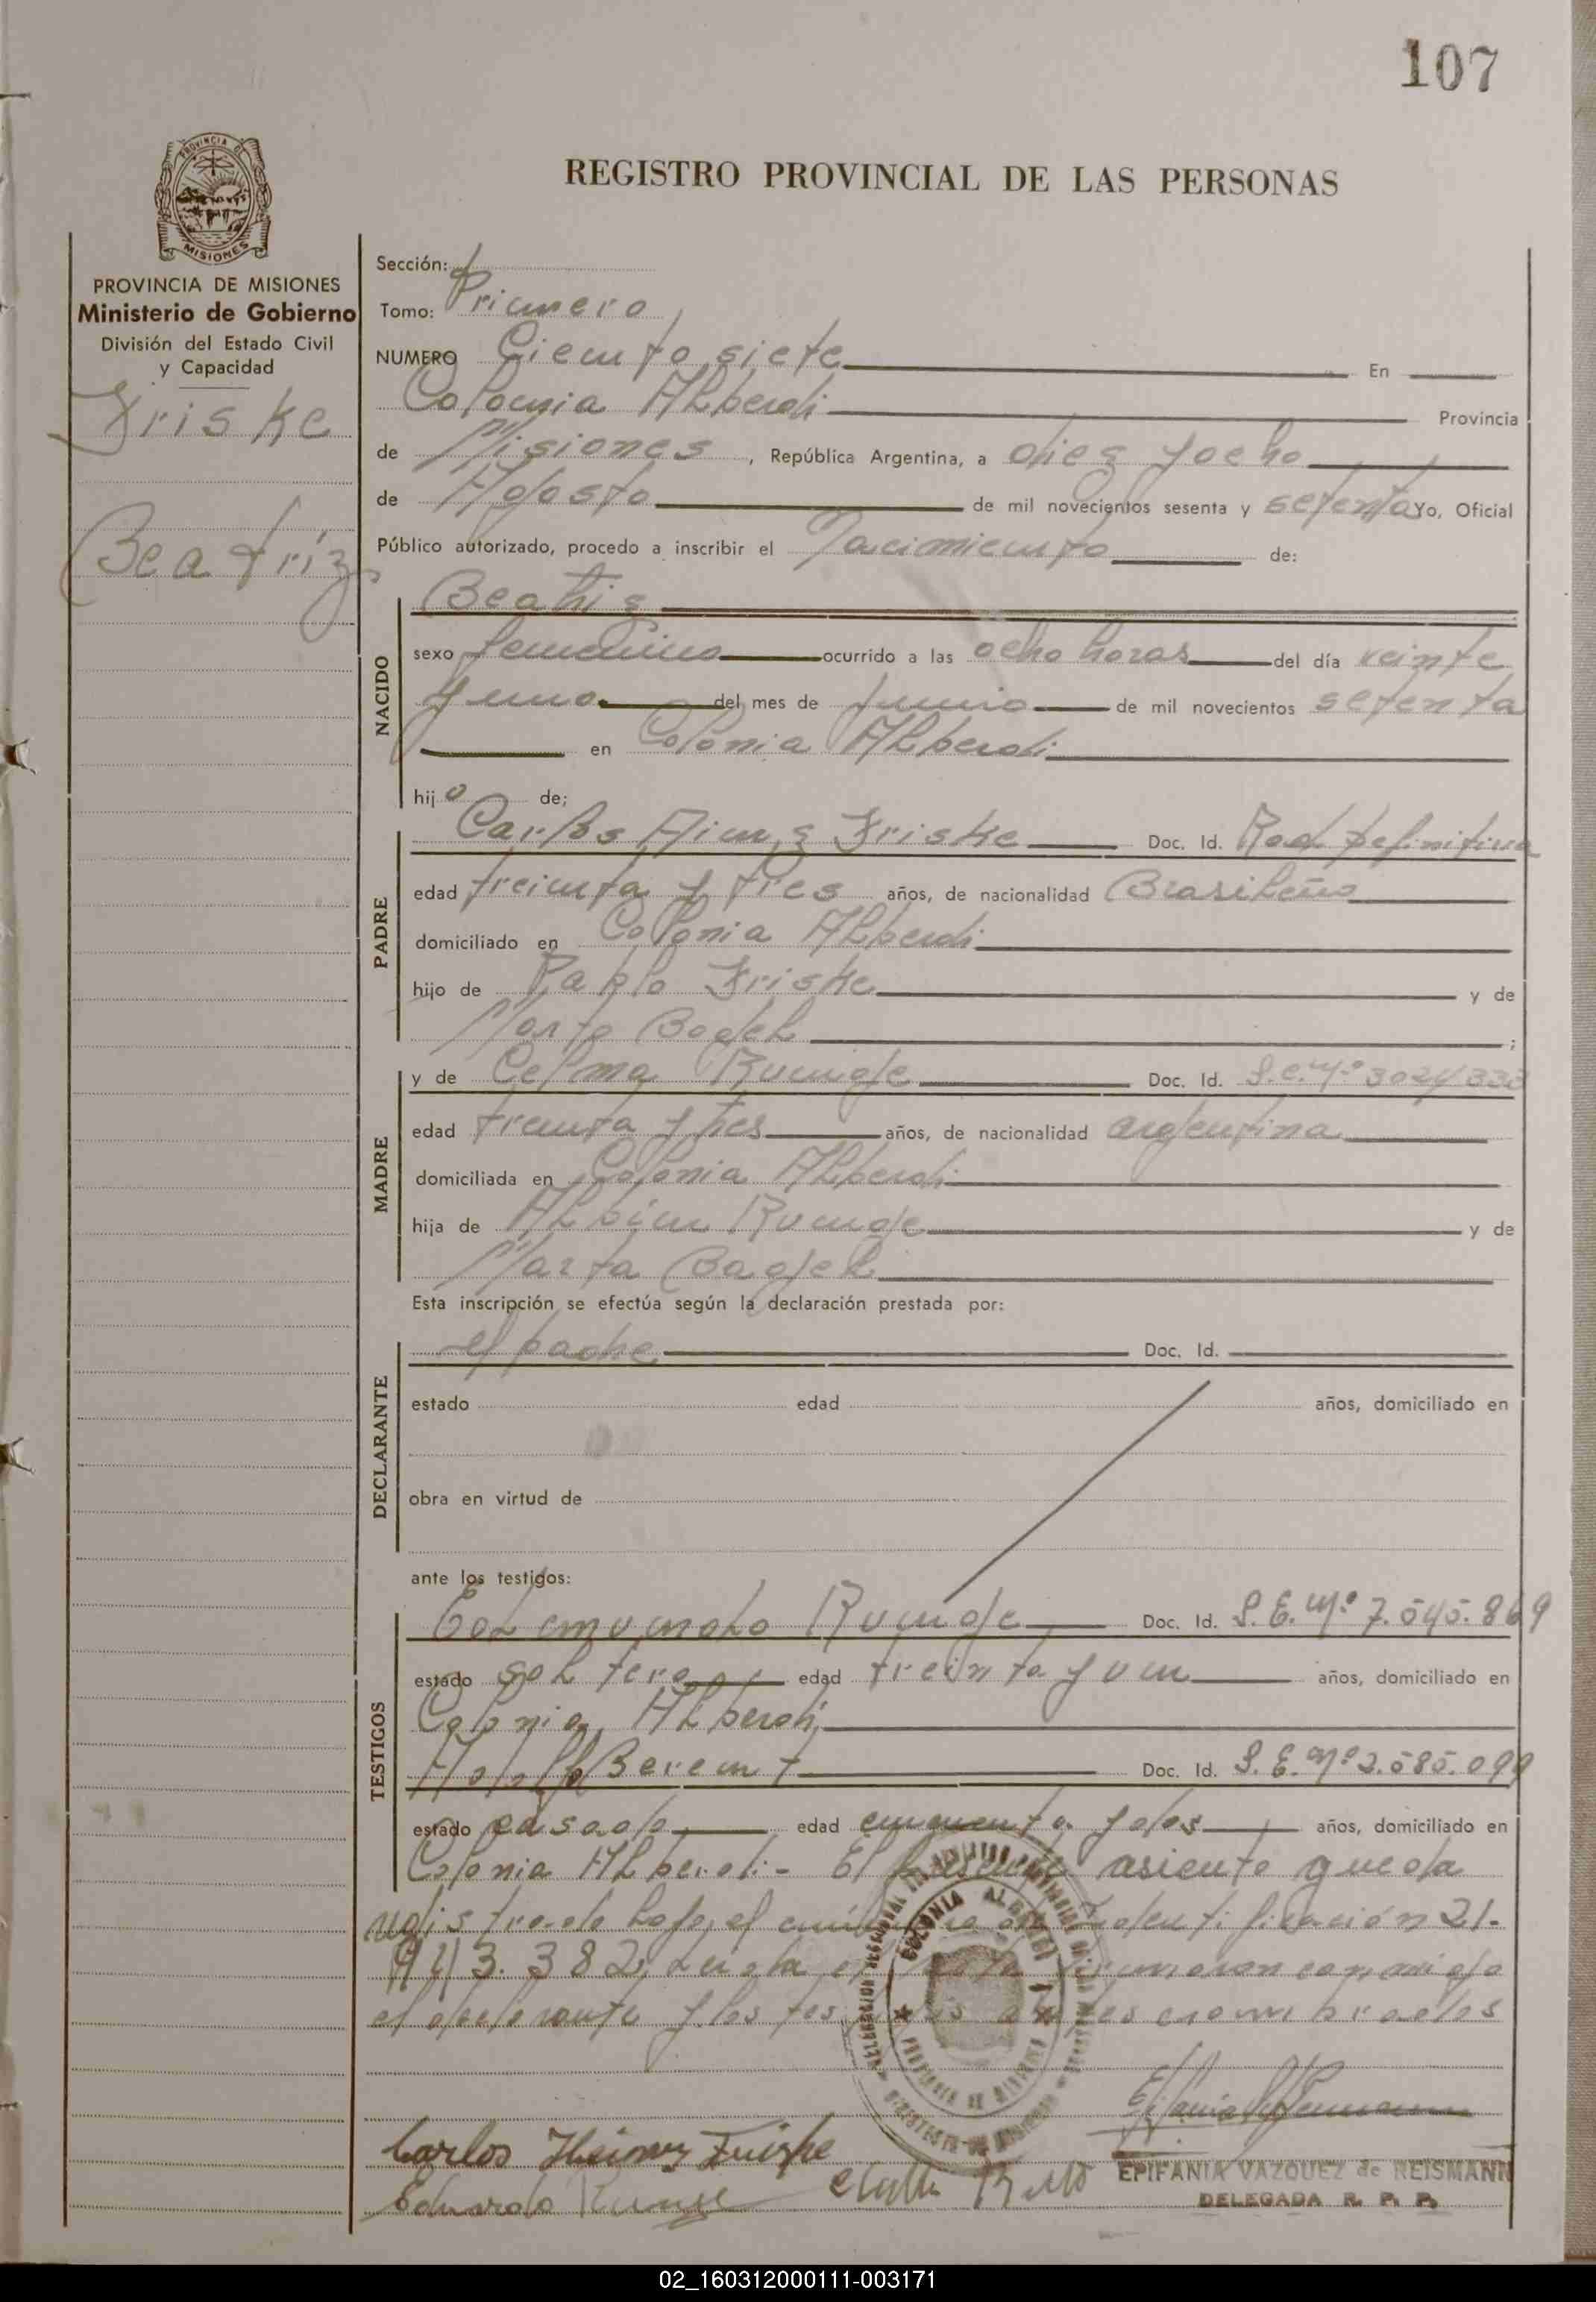 107
REGISTRO PROVINCIAL DE LAS PERSONAS
PROVINCIA DE MISIONES
Ministerio de Gobierno
División del Estado Civil
y Capacidad
Friske
Beatríz
Sección:
Tomo: Primero
NUMERO Ciento siete En
Colonia Alberdi Provincia
de Misiones, República Argentina, a diez y ocho
de Agosto de mil novecientos sesenta y setenta Yo, Oficial
Público autorizado, procedo a inscribir el Nacimiento de:
NACIDO
Beatriz
sexo femenino ocurrido a las ocho horas del día veinte
y uno del mes de Junio de mil novecientos setenta
en Colonia Alberdi
hijo de:
PADRE
Carlos Friske Doc. Id. Rad Definitiva
edad treinta y tres años, de nacionalidad Brasileña
domiciliado en Colonia Alberdi
hijo de Pablo Friske y de
Marta Bagel;
MADRE
y de Celma Runge Doc. Id.
edad treinta y tres años, de nacionalidad argentina
domiciliada en Colonia Alberdi
hija de Albin Runge y de
Marta Bagel
Esta inscripción se efectúa según la declaración prestada por:
DECLARANTE
el padre Doc. Id.
estado edad años, domiciliado en
obra en virtud de
ante los testigos:
TESTIGOS
Runge Doc. Id. 7.545.869
estado soltero edad treinta y un años, domiciliado en
Colonia Alberdi
Adolf Berent Doc. Id.
estado casado edad cincuenta y dos años, domiciliado en
Colonia Alberdi.- El presente asiento queda
registrado bajo el identificación 21.
943.382, Leida el acta firmaron conmigo
el declarante y los testigos antes nombrados
COLONIA ALBERDI
PROVINCIA DE MISIONES
Carlos Heinz Friske
Eduardo Runge
EPIFANIA VAZQUEZ de NEISMANN
DELEGADA R. P. P.
02_160312000111-003171